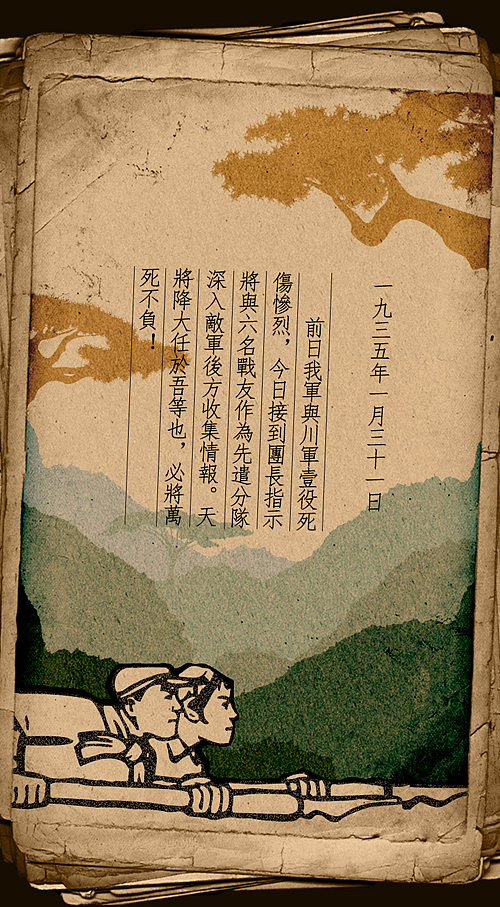 一九三五年一月三十一日
前日我軍與川軍壹役死
傷慘烈，今日接到團長指示
將與六名戰友作為先遣分隊
深入敵軍後方收集情報。天
將降大任於吾等也，必將萬
死不負！